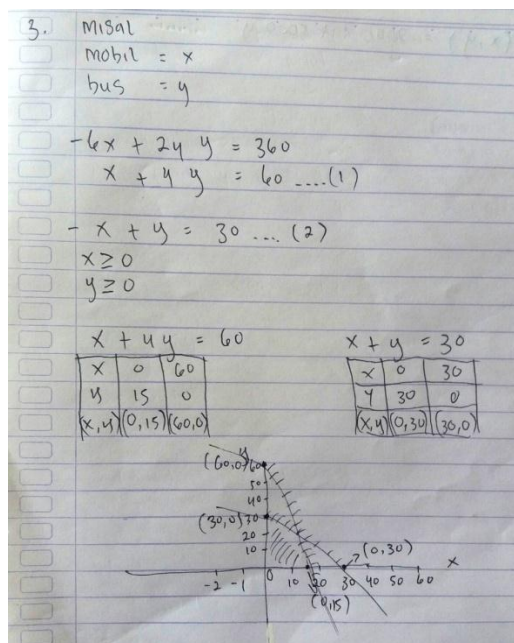 3. misal
mobil = x
bus = y
- 6x + 24 y = 360
x + 4 y = 60 ....(1)
- x + y = 30 ... (2)
x ≥ 0
y ≥ 0
x + 4y = 60
x 0 60
y 15 0
(x,y) (0,15) (60,0)
x + y = 30
x 0 30
y 30 0
(x,y) (0,30) (30,0)
y
(60,0) 60
50
40
(30,0) 30
20
10
(0,30)
x
-2 -1 0 10 20 30 40 50 60
(0,15)